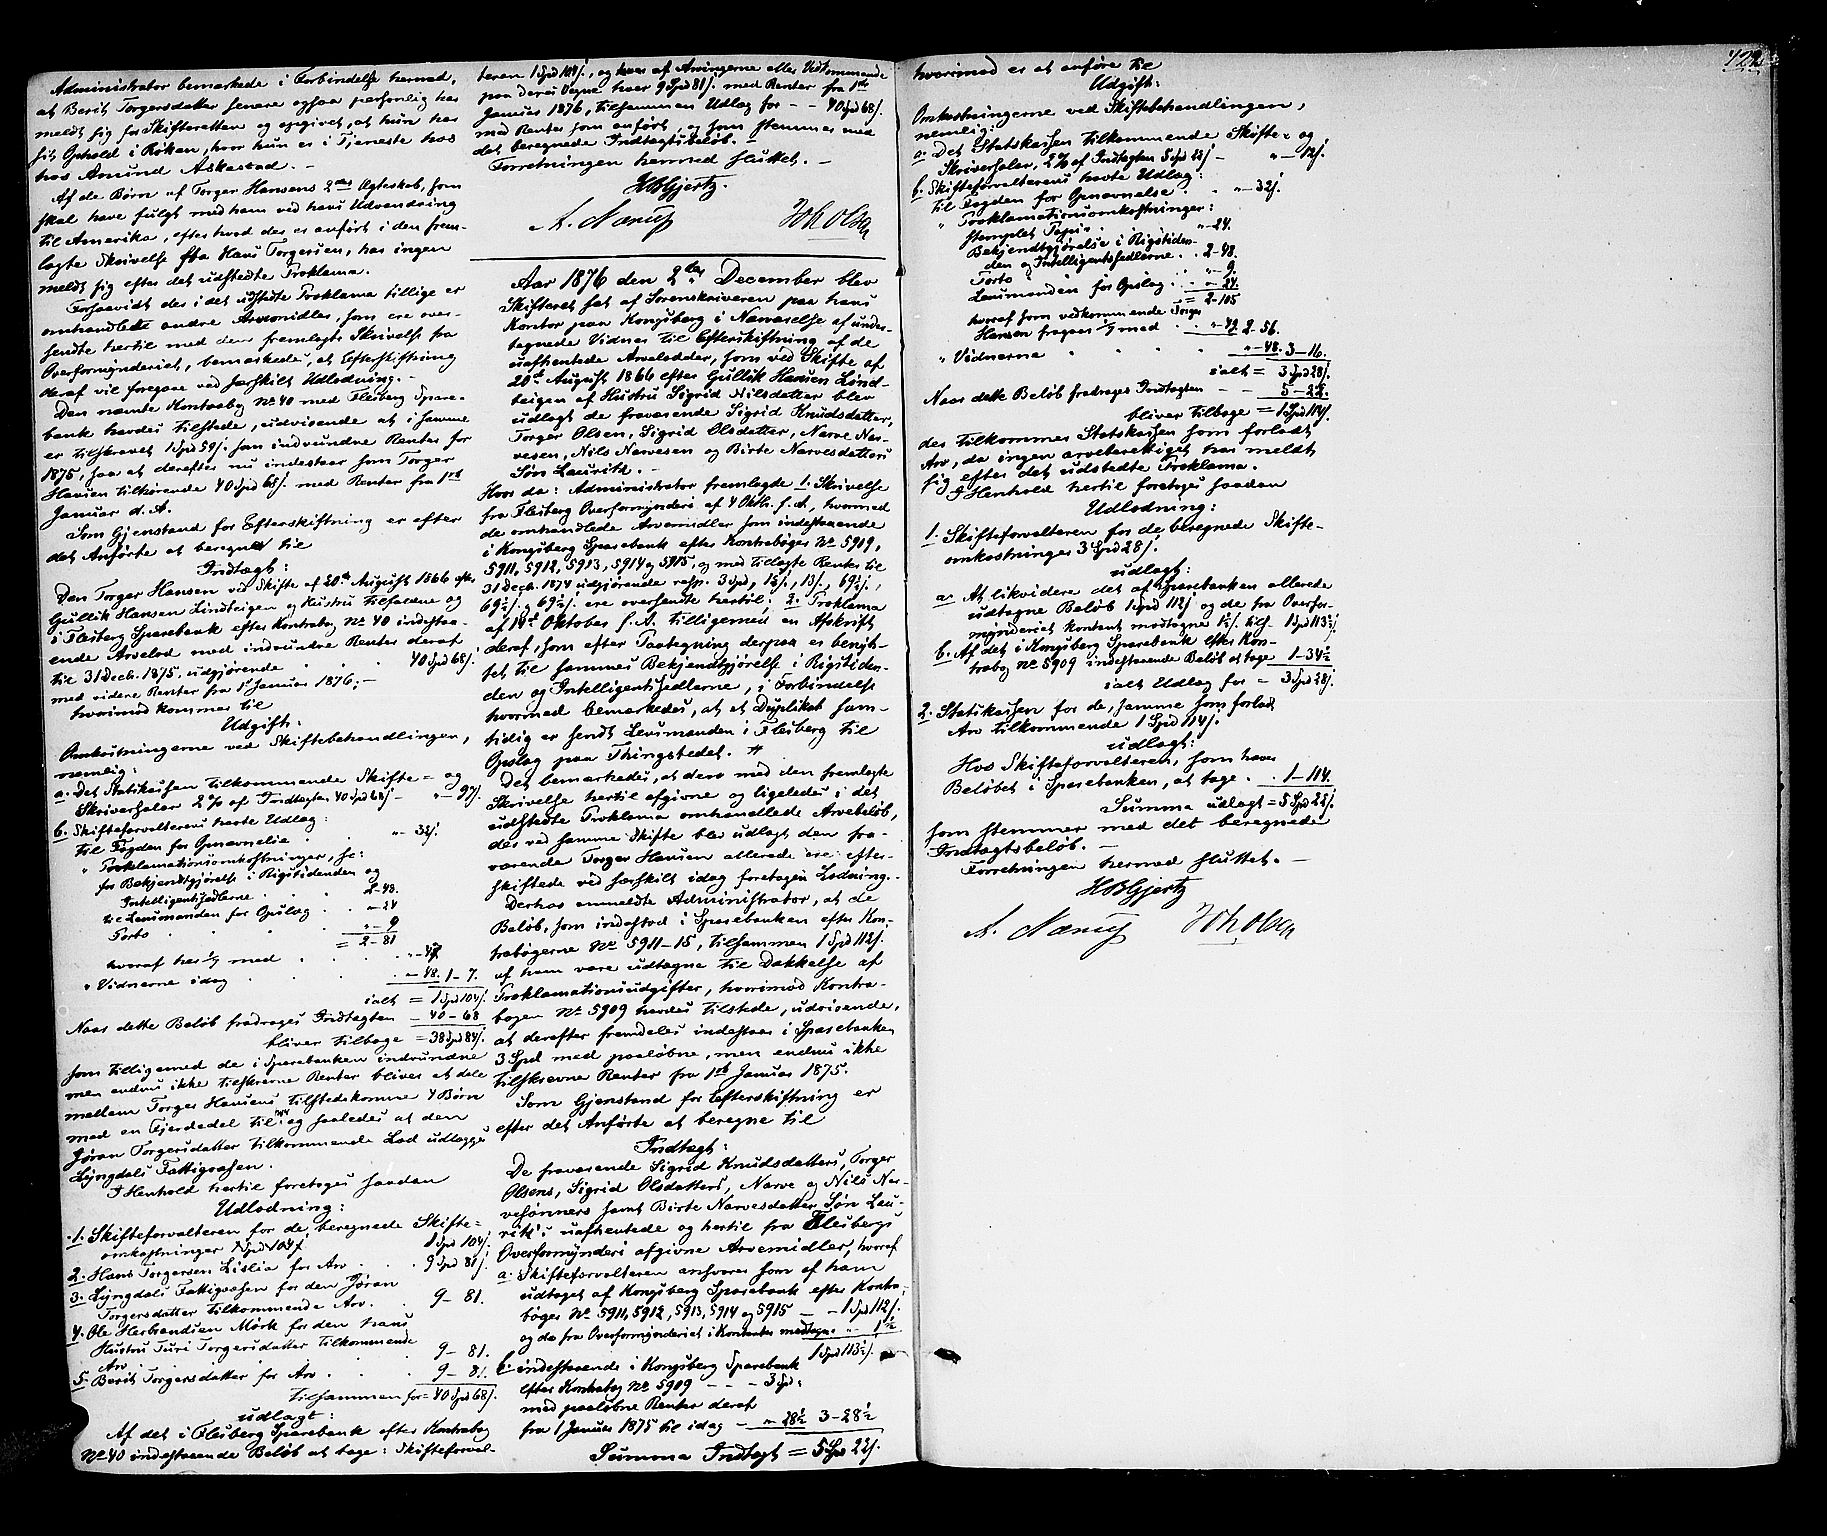 Administrator bemærkede i Forbindelse hermed,
at Berit Torgersdatter senere ogsaa personlig har
meldt sig for Skifteretten og opgivet, at hun har
sit Ophold i Røken, hvor hun er i Tjeneste hos
hos Amund Askestad. –
Af de Børn af Torger Hansens 2det Ægteskab, som
skal have fulgt med ham ved hans Udvandring
til Amerika, efter hvad der er anført i den frem-
lagte Skrivelse fra Hans Torgersen, har ingen
meldt sig efter det udstedte Proklama.
Forsaavidt der i det udstedte Proklama tillige er
omhandlet andre Arvemidler, som ere over-
sendte hertil med den fremlagte Skrivelse fra
Overformynderiet, bemærkedes, at Efterskiftning
deraf vil foregaa ved særskilt Udlodning. –
Den nævnte Kontrabog No 40 med Flesberg Spare-
bank havdes tilstede, udvisende at i samme
er tilskrevet 1 Spd 59 s. som indvundne Renter for
1875, saa at derefter nu indestaar som Torger
Hansen tilhørende 40 Spd 68 s. med Renter fra 1ste
Januar d. A.
Som Gjenstand for Efterskiftning er efter
det Anførte at beregne til
Indtægt:
Den Torger Hansen ved Skifte af 20de August 1866 efter
Gullik Hansen Lindteigen og Hustru tilfaldne og
i Flesberg Sparebank efter Kontrabog No 40 indestaa-
ende Arvelod med indvundne Renter deraf
til 31 Decb. 1875, udgjørende . . . 40 Spd 68 s.
med videre Renter fra 1 Januar 1876; –
hvorimod kommer til
Udgift:
Omkostningerne ved Skiftebehandlingen,
nemlig:
a. Det Statskassen tilkommende Skifte- og
Skriversalær 2% af Indtægten 40 Spd 68 s. – " – 97 s.
b. Skifteforvalterens havte Udlæg:
til Fogden for Opnævnelse . . " – 32 s.
" Proklamationsomkostninger, sc:
for Bekjendtgjørelse i Rigstidenden og
Intelligentssedlerne . . 2–48.
til Lensmanden for Opslag . . " – 24
Porto . . . " – 9
= 2–81
hvoraf her 1/7 med . . . " – 47
" Vidnerne idag . . . " – 48. 1 – 7.
ialt = 1 Spd 104 s.
Naar dette Beløb fradrages Indtægten – 40 – 68
bliver tilbage = 38 Spd 84 s.
som tilligemed de i Sparebanken indvundne
men endnu ikke tilskrevne Renter bliver at dele
mellem Torger Hansens tilstedekomne 4 Børn
med en Fjerdedel til hver og saaledes at den
Jøran Torgersdatter tilkommende Lod udlægges
Lyngdals Fattigvæsen.
I Henhold hertil foretoges saadan
Udlodning:
1. Skifteforvalteren for de beregnede Skifte-
omkostninger 1 Spd 104 s. 1 Spd 104 s.
2. Hans Torgersen Lislia for Arv . . 9 Spd 81 s.
3. Lyngdals Fattigvæsen for den Jøran
Torgersdatter tilkommende Arv. . 9 – 81.
4. Ole Herbrandsen Mørk for den hans
Hustru Turi Torgersdatter tilkommende
Arv . . . . 9 – 81.
5. Berit Torgersdatter for Arv . . . 9 – 81.
tilsammen for = 40 Spd 68 s.
udlagt:
Af det i Flesberg Sparebank efter Kontrabog
No 40 indestaaende Beløb at tage: Skifteforval-
teren 1 Spd 104 s., og hver af Arvingerne eller Vedkommende
paa deres Vegne hver 9 Spd 81 s. med Renter fra 1ste
Januar 1876, tilsammen Udlæg for – – 40 Spd 68 s.
med Renter som anført, og som stemmer med
det beregnede Indtægtsbeløb. –
Forretningen hermed sluttet. –
HBGjertz.
A. Nærup Joh Olsen
Aar 1876 den 2den December blev
Skifteret sat af Sorenskriveren paa hans
Kontor paa Kongsberg i Nærværelse af under-
tegnede Vidner til Efterskiftning af de
uafhentede Arvelodder, som ved Skifte af
20de August 1866 efter Gullik Hansen Lind-
teigen af Hustru Sigrid Nilsdatter blev
udlagt de fraværende Sigrid Knudsdatter,
Torger Olsen, Sigrid Olsdatter, Narve Nar-
vesen, Nils Narvesen og Birte Narvesdatters
Søn Laurits. –
Hvor da: Administrator fremlagde 1. Skrivelse
fra Flesberg Overformynderi af 4 Oktb. f. A., hvormed
de omhandlede Arvemidler som indestaaende
i Kongsberg Sparebank efter Kontrabøger No 5909,
5911, 5912, 5913, 5914 og 5915, og med tillagte Renter til
31 Decb. 1874 udgjørende resp. 3 Spd, 15 s., 13 s., 69½ s.,
69½ s. og 69½ s. ere oversendte hertil; 2. Proklama
af 14de Oktober f. A. tilligemed en Afskrift
deraf, som efter Paategning derpaa er benyt-
tet til sammes Bekjendtgjørelse i Rigstiden-
den og Intelligentssedlerne, i Forbindelse
hvormed bemærkedes, at et Duplikat sam-
tidig er sendt Lensmanden i Flesberg til
Opslag paa Thingstedet. #
Det bemærkedes, at den med den fremlagte
Skrivelse hertil afgivne og ligeledes i det
udstedte Proklama omhandlede Arvebeløb,
der ved samme Skifte blev udlagt den fra-
værende Torger Hansen allerede er efter-
skiftede ved særskilt idag foretagen Lodning. –
Derhos anmeldte Administrator, at de
Beløb, som indestod i Sparebanken efter Kon-
trabøgerne No 5911–15, tilsammen 1 Spd 112 s.
af ham vare udtagne til Dækkelse af
Proklamationsudgifter, hvorimod Kontra-
bogen No 5909 havdes tilstede, udvisende,
at derefter fremdeles indestaar i Sparebanken
3 Spd med paaløbne, men endnu ikke
tilskrevne Renter fra 1ste Januar 1875.
Som Gjenstand for Efterskiftning er
efter det Anførte at beregne til
Indtægt:
De fraværende Sigrid Knudsdatters, Torger
Olsens, Sigrid Olsdatters, Narve og Nils Nar-
vesønners samt Birte Narvesdatters Søn Lau-
rits's uafhentede og hertil fra Flesbergs
Overformynderi afgivne Arvemidler, hvoraf
a. Skifteforvalteren ansvarer som af ham
udtaget af Kongsberg Sparebank efter Kontra-
bøger No 5911, 5912, 5913, 5914 og 5915 – – 1 Spd 112 s.
og de fra Overformynderiet i Kontanter modtagne " – 1½
1 Spd 113½ s.
b. indestaaende i Kongsberg Sparebank
efter Kontrabog No 5909 – – – 3 Spd "
med paaløbne Renter deraf
fra 1 Januar 1875 til idag – " – 28½ 3–28½
Summa Indtægt = 5 Spd 22 s.
422
hvorimod er at anføre til
Udgift:
Omkostningerne ved Skiftebehandlingen,
nemlig:
a. Det Statskassen tilkommende Skifte- og
Skriversalær, 2% af Indtægten 5 Spd 22 s. – " – 12 s.
b. Skifteforvalterens havte Udlæg:
til Fogden for Opnævnelse . . " – 32 s.
" Proklamationsomkostninger:
stemplet Papir . . . " – 24.
Bekjendtgjørelse i Rigstiden-
den og Intelligentssedlerne . . 2–48.
Porto . . . " – 9.
Lensmanden for Opslag . . " – 24
= 2–105
hvoraf som vedkommende Torger
Hansen fragaar 1/7 med . . " – 49 2–56.
" Vidnerne . . . . " – 48. 3–16.
ialt = 3 Spd 28 s.
Naar dette Beløb fradrages Indtægten – – 5 – 22.
bliver tilbage = 1 Spd 114 s.
der tilkommer Statskassen som forladt
Arv, da ingen arveberettiget har meldt
sig efter det udstedte Proklama.
I Henhold hertil foretoges saadan
Udlodning:
1. Skifteforvalteren for de beregnede Skifte-
omkostninger 3 Spd 28 s.
udlagt:
a. At likvidere det af Sparebanken allerede
udtagne Beløb 1 Spd 112 s. og de fra Overfor-
mynderiet kontant modtagne 1½ s. tils. 1 Spd 113½ s.
b. Af det i Kongsberg Sparebank efter Kon-
trabog No 5909 indestaaende Beløb at tage 1–34½
ialt Udlæg for = 3 Spd 28 s.
2. Statskassen for de, samme som forladt
Arv tilkommende 1 Spd 114 s.
udlagt:
Hos Skifteforvalteren, som hæver
Beløbet i Sparebanken, at tage . . 1–114.
Summa udlagt = 5 Spd 22 s.
som stemmer med det beregnede
Indtægtsbeløb. –
Forretningen hermed sluttet. –
HBGjertz
A. Nærup Joh Olsen